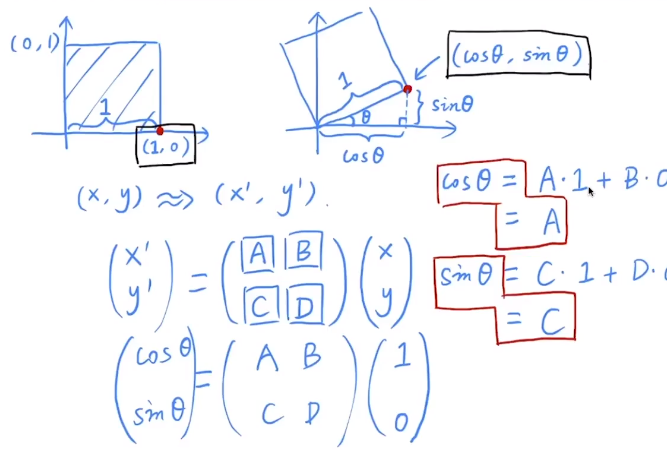 (0,1)
1
(1,0)
(cosθ, sinθ)
1
θ
sinθ
cosθ
(x, y) ⇝ (x', y').
(x' y') = (A B C D) (x y)
(cosθ sinθ) = (A B C D) (1 0)
cosθ = A·1 + B·0
= A
sinθ = C·1 + D·
= C